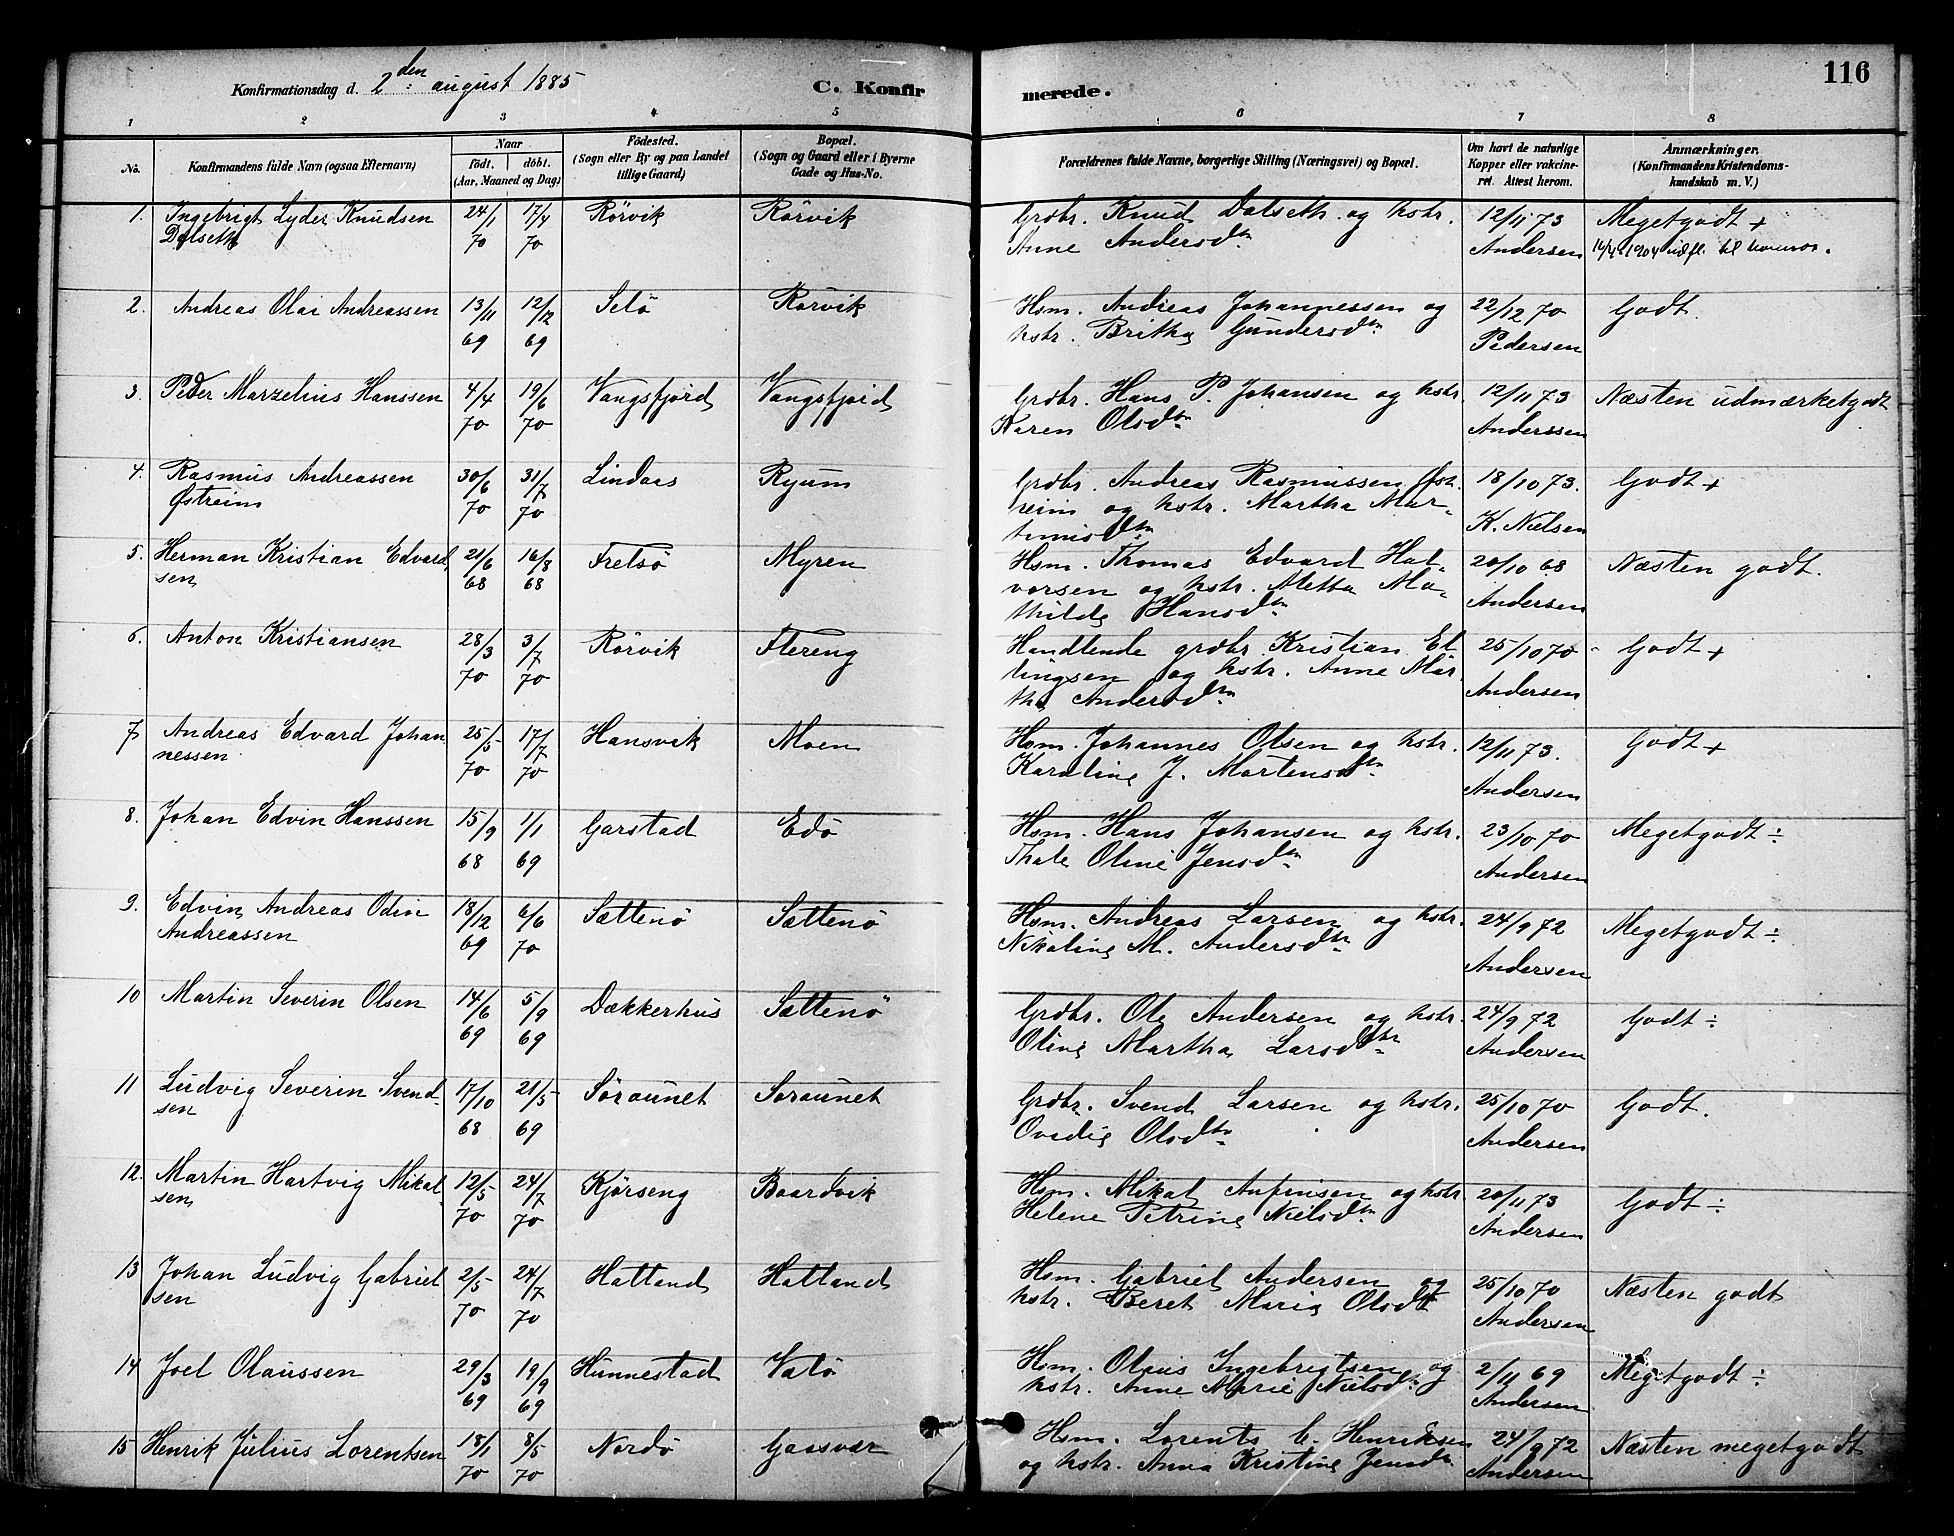 116
Konfirmationsdag d. 2den august 1885 C. Konfir merede.
1 2 3 4 5 6 7 8
No. Konfirmandens fulde Navn (ogsaa Efternavn) Naar født. døbt. (Aar, Maaned og Dag) Födested. (Sogn eller By og paa Landet tillige Gaard) Bopæl. (Sogn og Gaard eller i Byerne Gade og Hus-No. Forældrenes fulde Navne, borgerlige Stilling (Næringsvei) og Bopæl. Om havt de naturlige Kopper eller vakcineret. Attest herom. Anmærkninger. (Konfirmandens Kristendomskundskab m. V.)
1. Ingebrigt Lyder Knudsen 24/1 17/4 Rörvik Rörvik Grdbr. Knud Dalseth og hstr. 12/11 73 Megetgodt +
Dalseth 70 70 Anne Andersdtr Andersen 1904 udfl. til
2. Andreas Olai Andreassen 13/11 12/12 Selö Rörvik Hsm. Andreas Johannessen og 22/12 70 Godt.
69 69 hstr. Britha Gundersdtr Pedersen
3. Peder Marzelius Hanssen 4/4 19/6 Vangsfjord Vangsfjord Grdbr. Hans P. Johansen og hstr. 12/11 73 Næsten udmærketgodt
70 70 Karen Olsdtr Anderssen
4. Rasmus Andreassen 30/6 31/7 Lindaas Ryum Grdbr. Andreas Rasmussen Øst- 18/10 73. Godt +
Østreim 70 70 reim og hstr. Martha Mar-
tinusdtr K. Nielsen
5. Herman Kristian Edvard 21/6 16/8 Frelsö Myren Hsm. Thomas Edvard Hal- 20/10 68 Næsten godt.
sen 68 68 vorsen og hstr. Metta Ma-
thilde Hansdtr Andersen
6. Anton Kristiansen 28/3 3/7 Rörvik Flereng Handlende grdbr. Kristian El- 25/10 70 Godt +
70 70 lingsen og hstr. Anne Mar-
tha Andersdtr Andersen
7 Andreas Edvard Johan 25/5 17/7 Hansvik Moen Hsm. Johannes Olsen og hstr. 12/11 73. Godt +
nessen 70 70 Karoline J. Mortensdtr Andersen
8. Johan Edvin Hanssen 15/9 1/1 Garstad Edö Hsm. Hans Johansen og hstr. 23/10 70 Megetgodt ÷
68 69 Thale Oline Jensdtr Andersen
9. Edvin Andreas Odin 18/12 6/6 Sættenö Sættenö Hsm. Andreas Larsen og hstr. 24/9 72 Megetgodt ÷
Andreassen 69 70 Nikoline M. Andersdtr Andersen
10 Martin Severin Olsen 14/6 5/9 Dækkerhus Sættenö Grdbr. Ole Andersen og hstr. 24/9 72 Godt ÷
69 69 Oline Martha Larsdtr Andersen
11 Ludvig Severin Svend- 17/10 21/5 Söraunet Söraunet Grdbr. Svend Larsen og hstr. 25/10 70 Godt.
sen 68 69 Ovedie Olsdtr Andersen
12. Martin Hartvig Mikal- 12/5 24/7 Kjörseng Baardvik Hsm. Mikal Anfinsen og hstr. 20/11 73 Godt ÷
sen 70 70 Helene Petrine Nielsdtr Andersen
13 Johan Ludvig Gabriel 2/5 24/7 Halland Halland Hsm. Gabriel Andersen og 25/10 70 Næsten godt
sen 70 70 hstr. Beret Marie Olsdtr Andersen
14 Joel Olaussen 29/3 19/9 Hunnestad Valö Hsm. Olaus Ingebrigtsen og 2/11 69 Megetgodt ÷
69 69 hstr. Anne Marie Nielsdtr Andersen
15 Henrik Julius Lorentsen 18/1 8/5 Nordö Gaasvær Hsm. Lorents C. Henriksen 24/9 72 Næsten megetgodt
70 70 og hstr. Anna Kristine Jensdtr Andersen